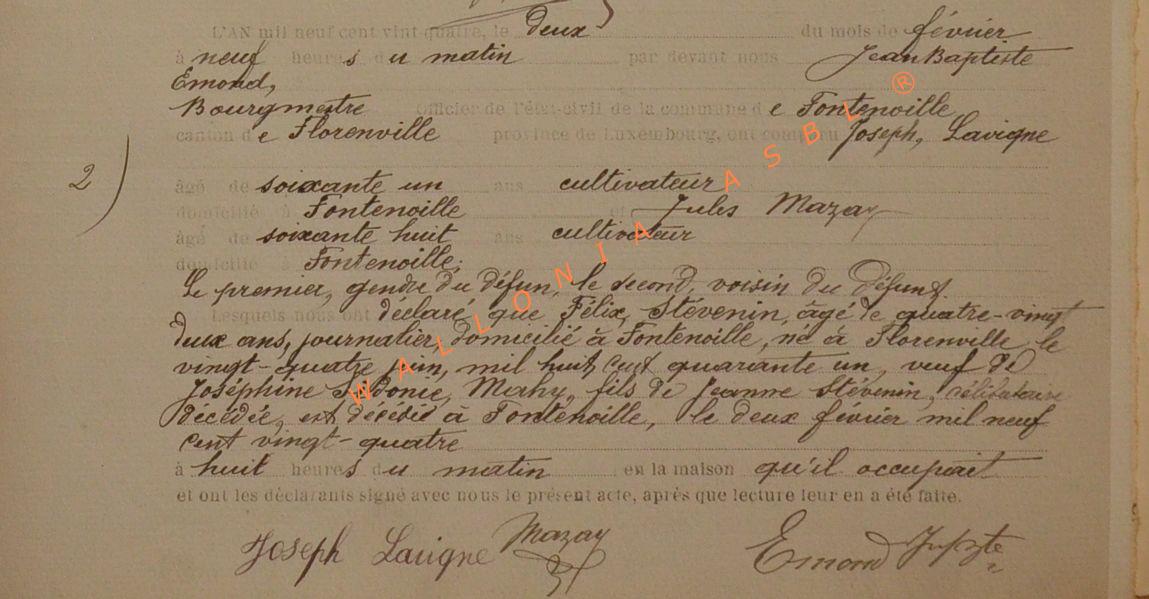 L'AN mil neuf cent vint quatre, le deux du mois de février
à neuf heures du matin par devant nous Jean Baptiste
Émond,
Bourgmestre Officier de l'état-civil de la commune de Fontenoille
canton de Florenville province de Luxembourg, ont comparu Joseph, Lavigne
2)
âgé de soixante un ans cultivateur
domicilié à Fontenoille et Jules Mazay
âgé de soixante huit ans cultivateur
domicilié à Fontenoille.
Le premier, gendre du défun, le second, voisin du défunt.
Lesquels nous ont déclaré que Félix, Stévenin, âgé de quatre-vingt
deux ans, journalier, domicilié à Fontenoille, né à Florenville le
vingt-quatre juin, mil huit cent quarante un, veuf de
Joséphine Sidonie, Mahy, fils de Jeanne Stévenin, célibataire
décédée, est décédé à Fontenoille, le deux février mil neuf
cent vingt-quatre
à huit heures du matin en la maison qu'il occupait
et ont les déclarants signé avec nous le présent acte, après que lecture leur en a été faite.
Joseph Lavigne Mazay Emond
WALLONIA ASBL ®